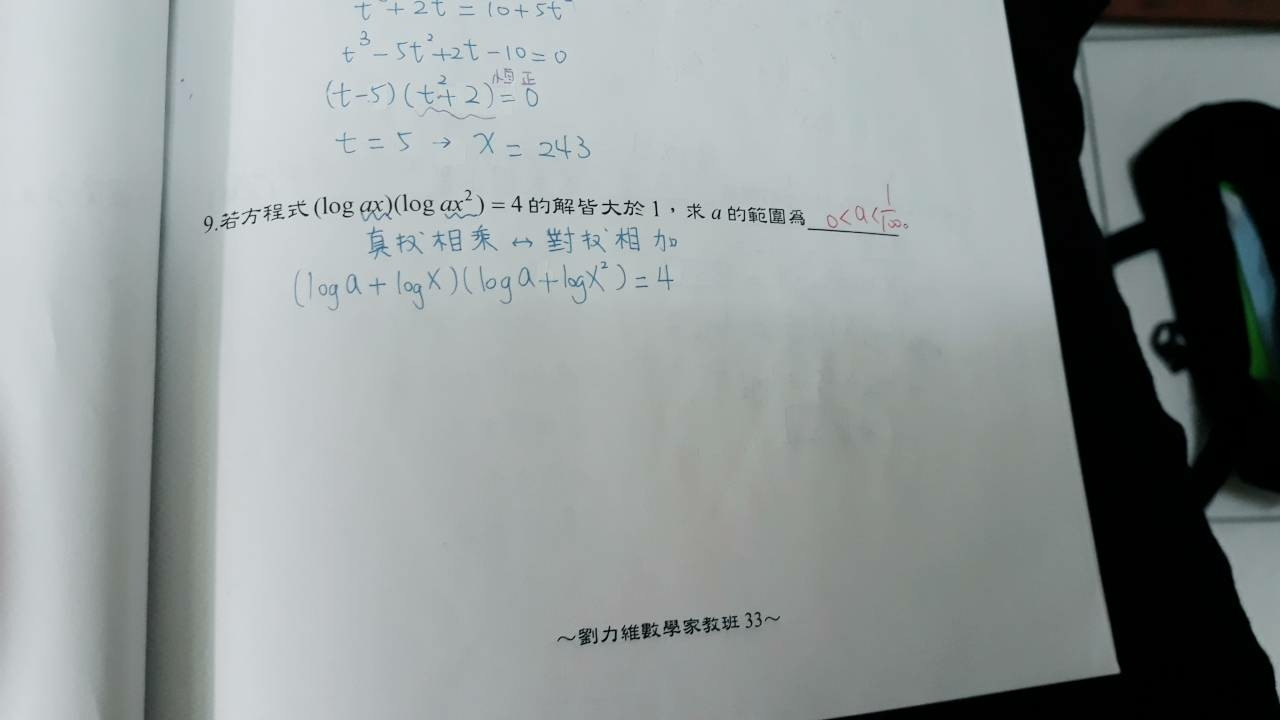 t³ + 2t = 10 + 5t²
t³ - 5t² + 2t - 10 = 0
恆正
(t-5)(t²+2) = 0
t = 5 → x = 243
9.若方程式(log ax)(log ax²) = 4 的解皆大於 1，求 a 的範圍為 0<a<1/100。
真數相乘 ↔ 對數相加
(log a + log x)(log a + log x²) = 4
～劉力維數學家教班 33～